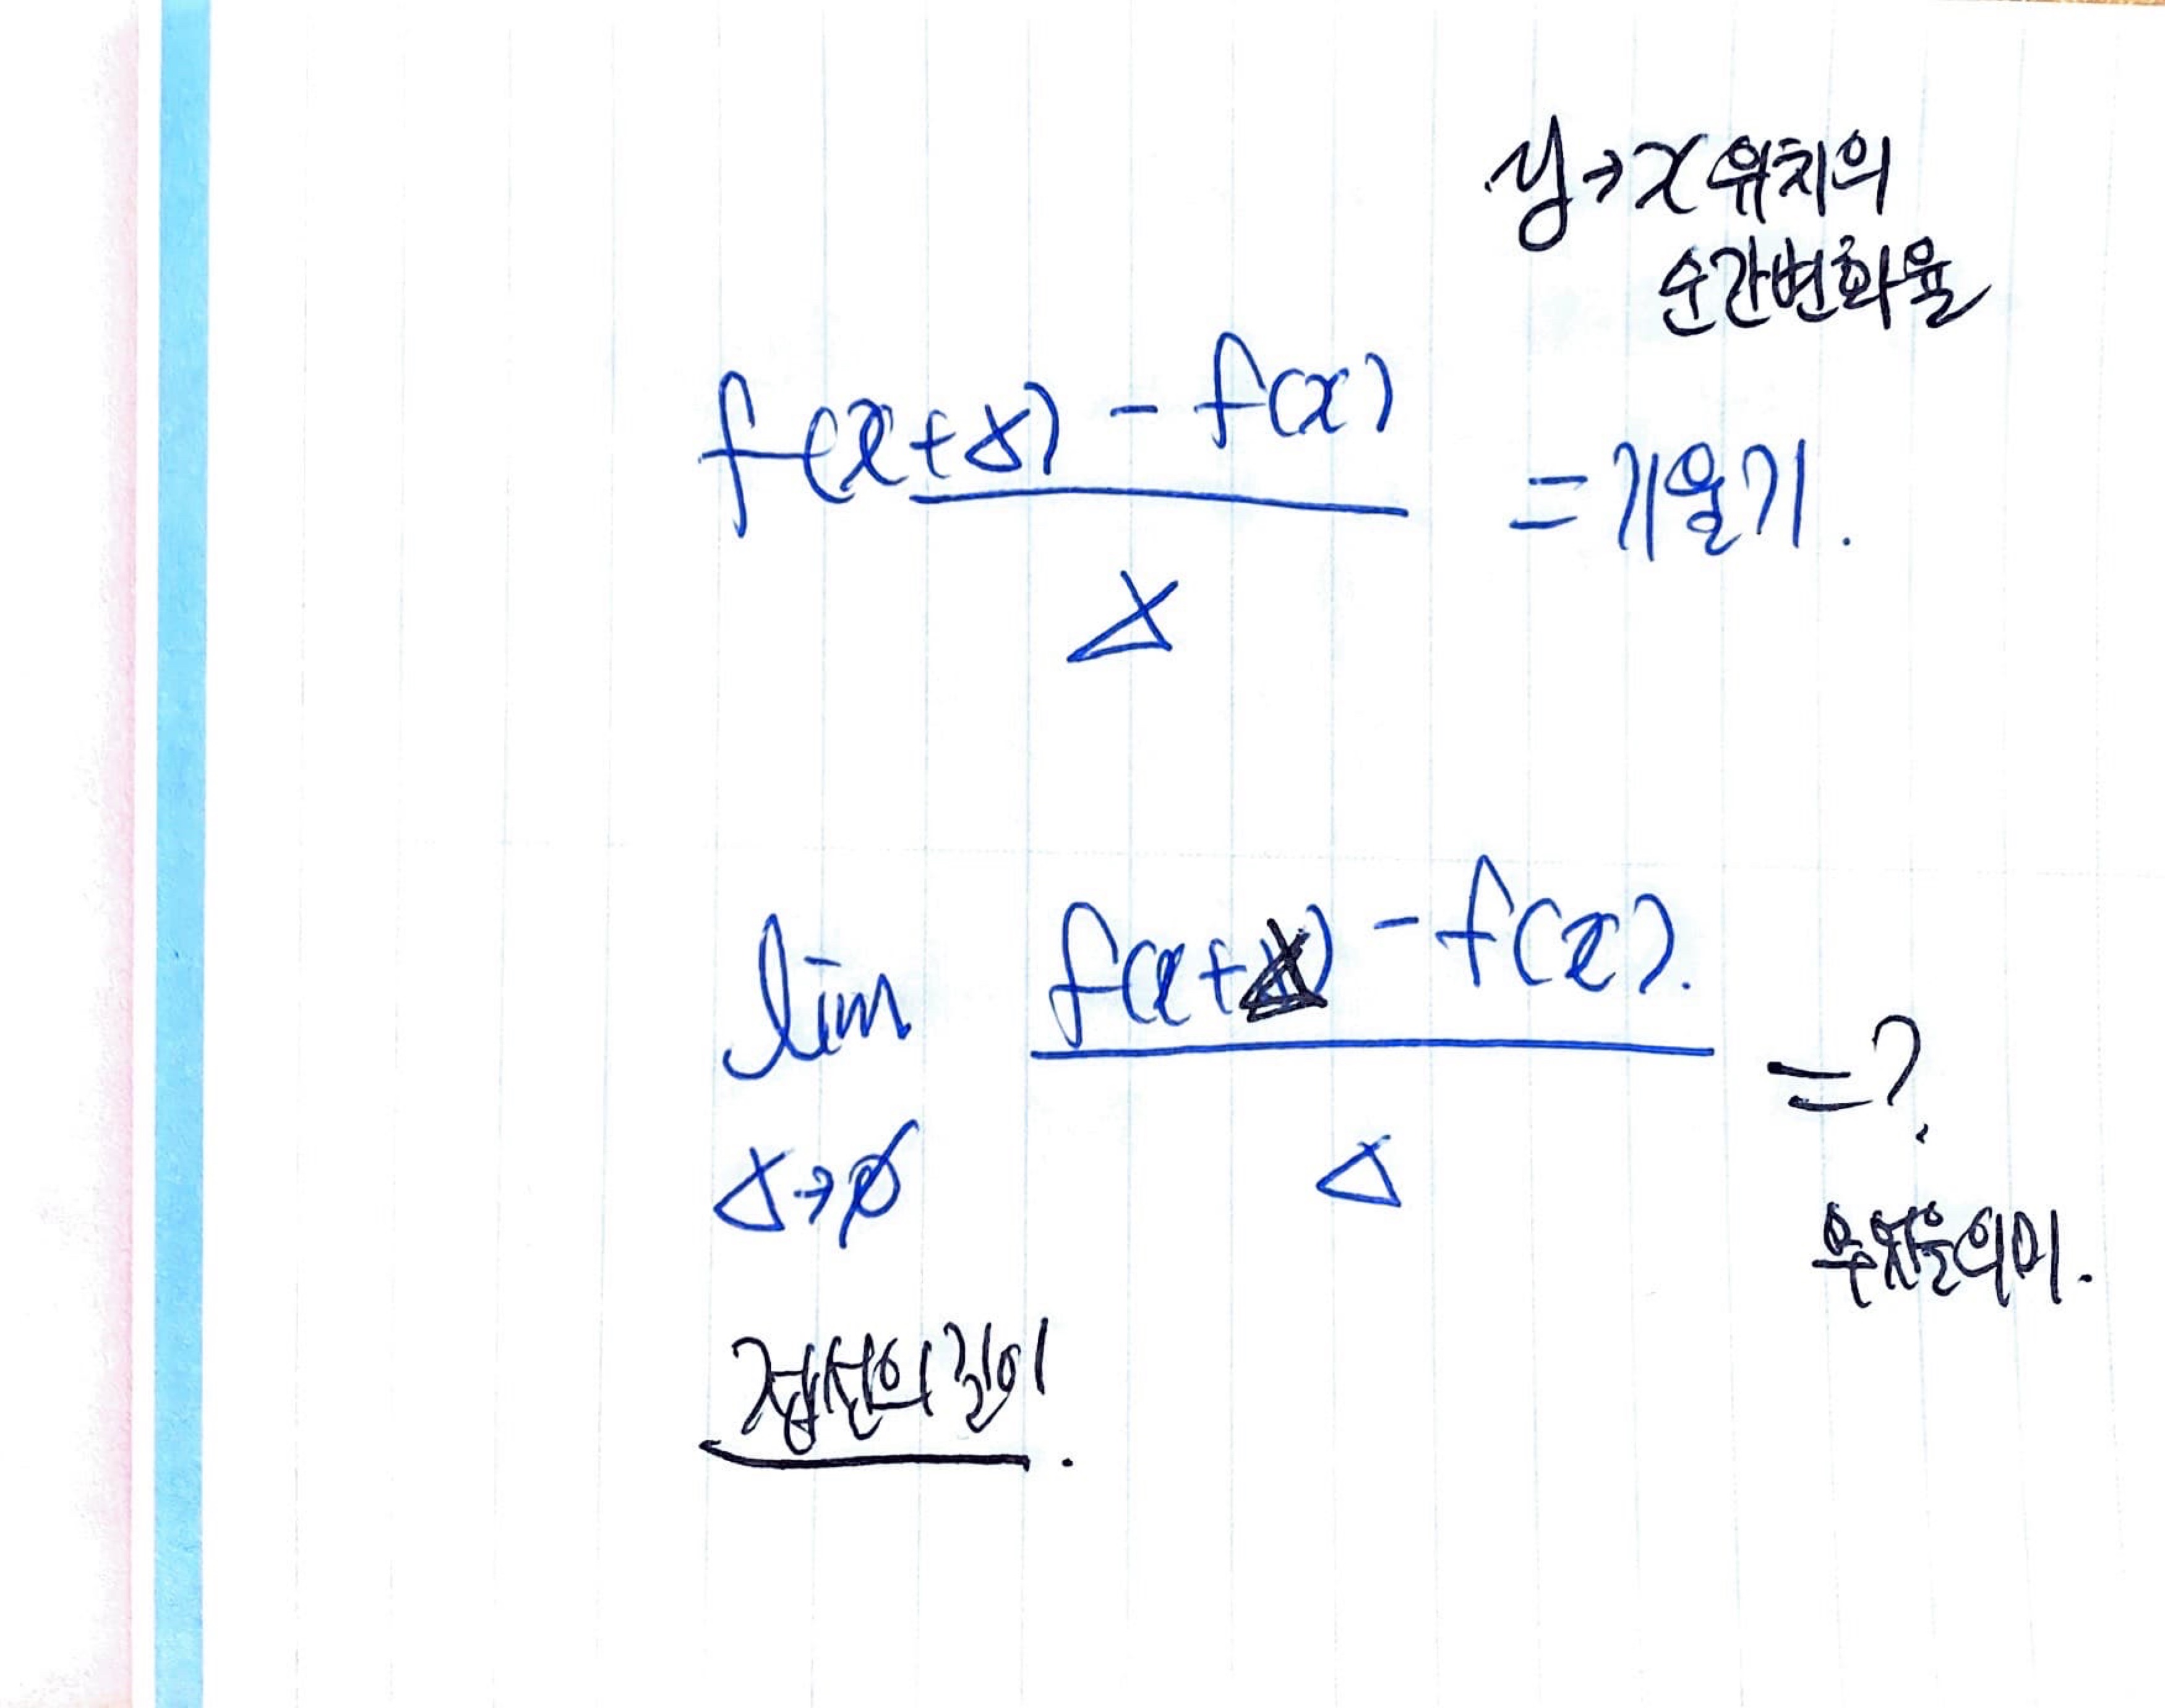 y→x 위치의
순간변화율
f(x+Δ) - f(x)
= 기울기.
Δ
lim f(x+Δ) - f(x).
= ?
Δ→0 Δ
무엇을의미.
접선의길이.